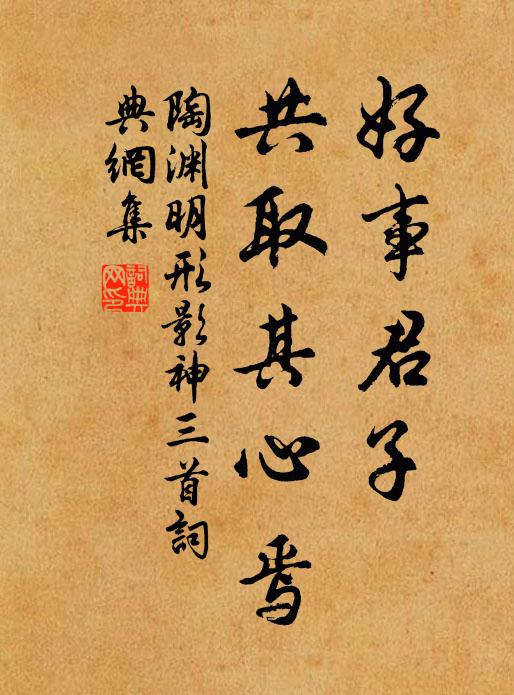 好事君子
共取其心焉
陶渊明形影神三首詞
典網集
詞典
网印